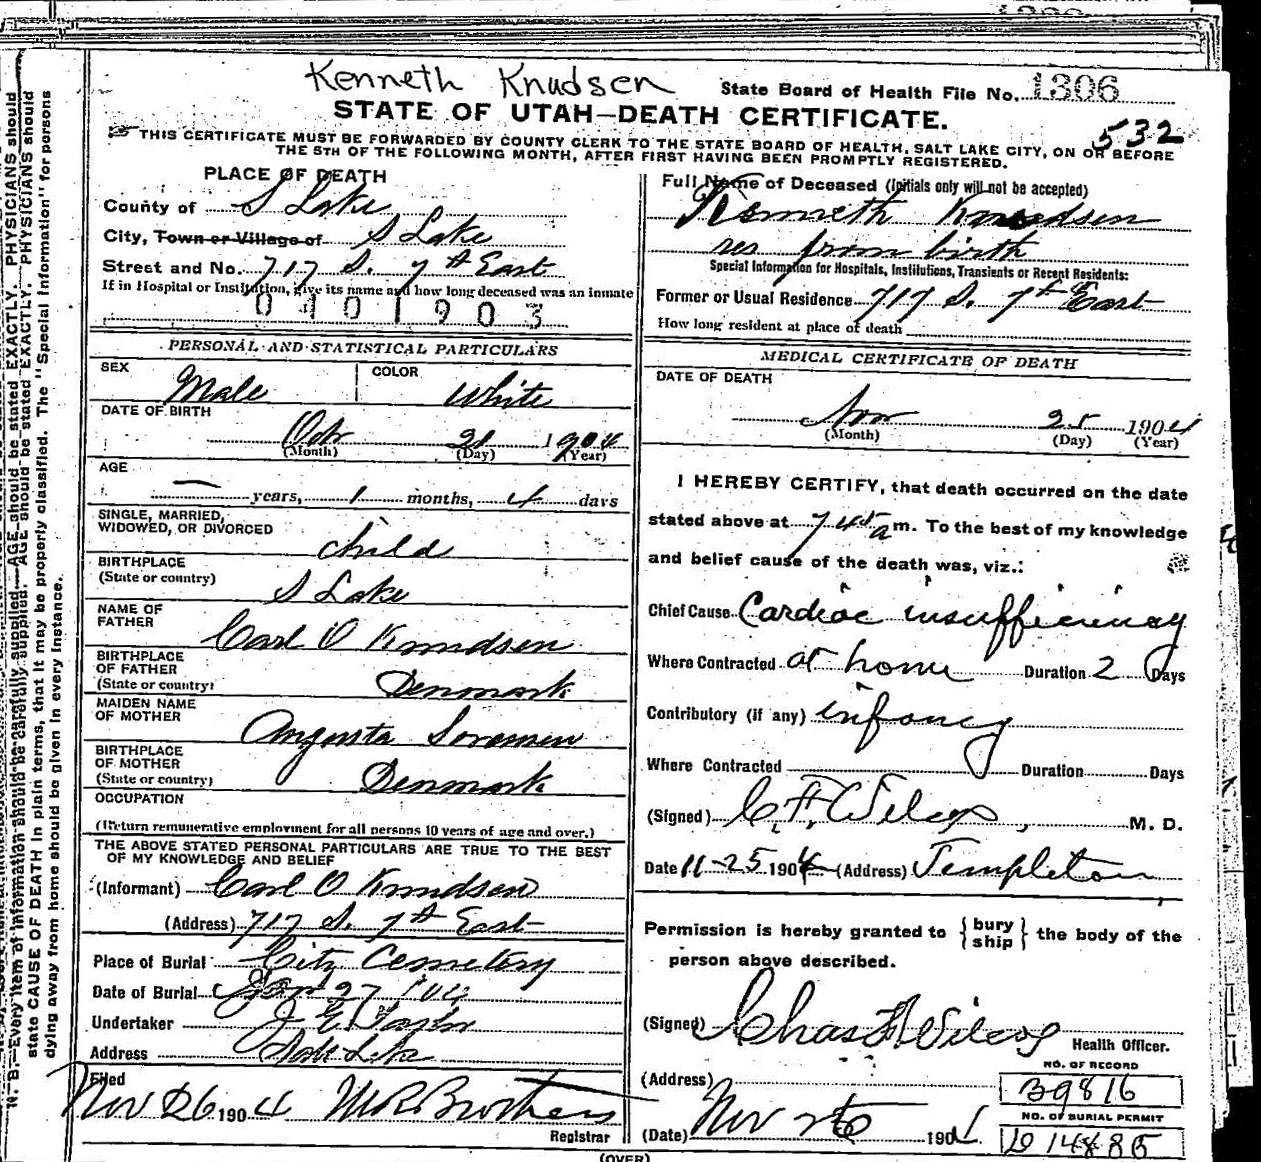 Kenneth Knudsen
State Board of Health File No. 1306
STATE OF UTAH—DEATH CERTIFICATE.
532
THIS CERTIFICATE MUST BE FORWARDED BY COUNTY CLERK TO THE STATE BOARD OF HEALTH, SALT LAKE CITY, ON OR BEFORE
THE 5TH OF THE FOLLOWING MONTH, AFTER FIRST HAVING BEEN PROMPTLY REGISTERED.
PLACE OF DEATH
County of S Lake
City, Town or Village of S Lake
Street and No. 717 S. 7th East
If in Hospital or Institution, give its name and how long deceased was an inmate
0401903
PERSONAL AND STATISTICAL PARTICULARS
SEX Male COLOR White
DATE OF BIRTH
Oct 21 1904
(Month) (Day) (Year)
AGE
— years, 1 months, 4 days
SINGLE, MARRIED,
WIDOWED, OR DIVORCED child
BIRTHPLACE
(State or country) S Lake
NAME OF
FATHER Carl O Knudsen
BIRTHPLACE
OF FATHER
(State or country) Denmark
MAIDEN NAME
OF MOTHER Augusta Sorensen
BIRTHPLACE
OF MOTHER
(State or country) Denmark
OCCUPATION
(Return remunerative employment for all persons 10 years of age and over.)
THE ABOVE STATED PERSONAL PARTICULARS ARE TRUE TO THE BEST
OF MY KNOWLEDGE AND BELIEF
(Informant) Carl O Knudsen
(Address) 717 S. 7th East
Place of Burial City Cemetery
Date of Burial 27 104
Undertaker J E Taylor
Address Salt Lake
Filed
Nov 26 1904 M R Brothers
Registrar
Full Name of Deceased (Initials only will not be accepted)
Kenneth Knudsen
res from birth
Special Information for Hospitals, Institutions, Transients or Recent Residents:
Former or Usual Residence 717 S. 7th East
How long resident at place of death
MEDICAL CERTIFICATE OF DEATH
DATE OF DEATH
Nov 25 1904
(Month) (Day) (Year)
I HEREBY CERTIFY, that death occurred on the date
stated above at 7 45 a m. To the best of my knowledge
and belief cause of the death was, viz.:
Chief Cause Cardiac insufficiency
Where Contracted at home Duration 2 Days
Contributory (if any) infancy
Where Contracted Duration Days
(Signed) C. F. Wilcox, M. D.
Date 11-25 1904 (Address) Templeton
Permission is hereby granted to { bury ship } the body of the
person above described.
(Signed) Chas F Wilcox
Health Officer.
(Address)
(Date) Nov 26 1904
NO. OF RECORD
39816
NO. OF BURIAL PERMIT
D 14885
(OVER)
N. B.—Every item of information should be carefully supplied. AGE should be stated EXACTLY. PHYSICIANS should
state CAUSE OF DEATH in plain terms, that it may be properly classified. The "Special Information" for persons
dying away from home should be given in every instance.